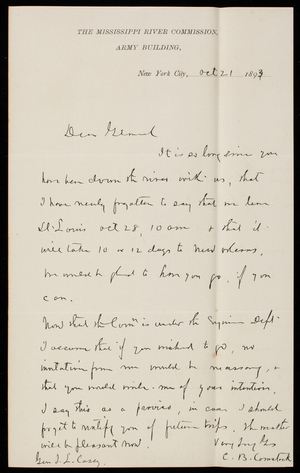 THE MISSISSIPPI RIVER COMMISSION,
ARMY BUILDING,
New York City, Oct 21 1893
Dear General
It is so long since you
have been down the river with us, that
I have nearly forgotten to say that we leave
St. Louis Oct 28, 10 am & that it
will take 10 or 12 days to New Orleans,
We would be glad to have you go, if you
can.
Now that the Comn is under the Engineer Dept
I assume that if you wished to go, no
invitation from me would be necessary, &
that you would write me of your intention.
I say this as a proviso, in case I should
forget to notify you of future trips. The weather
will be pleasant now. Very truly yrs
Gen T. L. Casey. C. B. Comstock